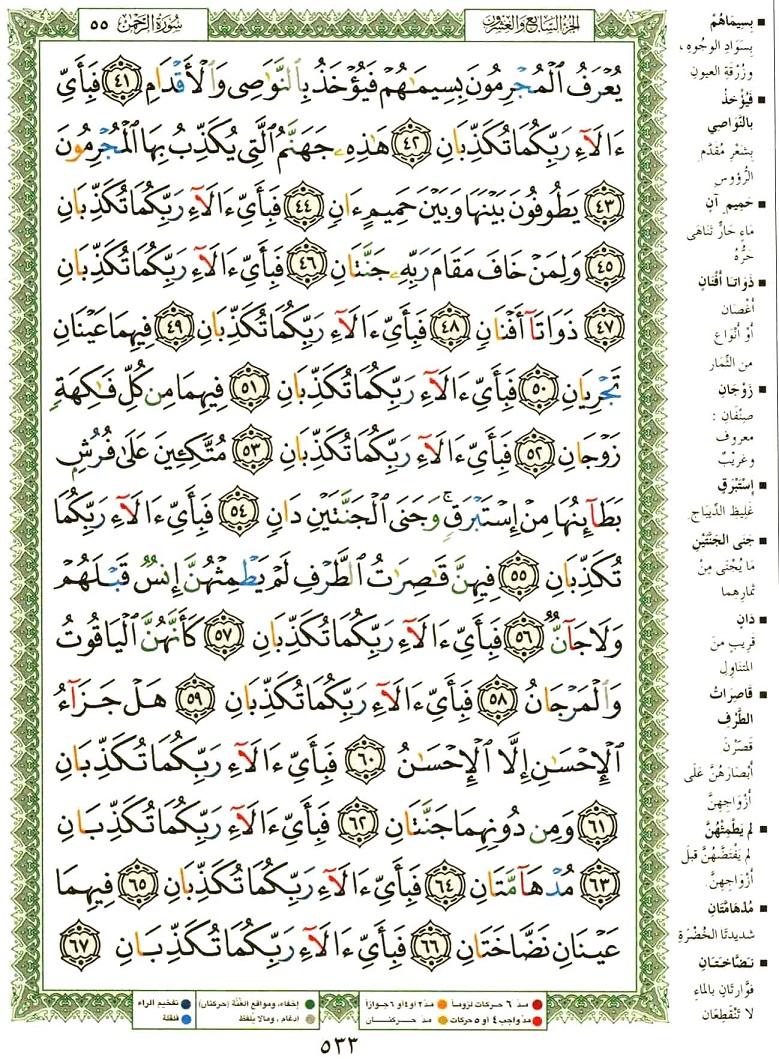 الجزء السابع والعشرون
سُورَةُ الرَّحْمٰن ٥٥
يُعْرَفُ ٱلْمُجْرِمُونَ بِسِيمَـٰهُمْ فَيُؤْخَذُ بِٱلنَّوَٰصِى وَٱلْأَقْدَامِ ٤١ فَبِأَىِّ
ءَالَآءِ رَبِّكُمَا تُكَذِّبَانِ ٤٢ هَـٰذِهِۦ جَهَنَّمُ ٱلَّتِى يُكَذِّبُ بِهَا ٱلْمُجْرِمُونَ
٤٣ يَطُوفُونَ بَيْنَهَا وَبَيْنَ حَمِيمٍ ءَانٍ ٤٤ فَبِأَىِّ ءَالَآءِ رَبِّكُمَا تُكَذِّبَانِ
٤٥ وَلِمَنْ خَافَ مَقَامَ رَبِّهِۦ جَنَّتَانِ ٤٦ فَبِأَىِّ ءَالَآءِ رَبِّكُمَا تُكَذِّبَانِ
٤٧ ذَوَاتَآ أَفْنَانٍ ٤٨ فَبِأَىِّ ءَالَآءِ رَبِّكُمَا تُكَذِّبَانِ ٤٩ فِيهِمَا عَيْنَانِ
تَجْرِيَانِ ٥٠ فَبِأَىِّ ءَالَآءِ رَبِّكُمَا تُكَذِّبَانِ ٥١ فِيهِمَا مِن كُلِّ فَـٰكِهَةٍ
زَوْجَانِ ٥٢ فَبِأَىِّ ءَالَآءِ رَبِّكُمَا تُكَذِّبَانِ ٥٣ مُتَّكِـِٔينَ عَلَىٰ فُرُشٍ
بَطَآئِنُهَا مِنْ إِسْتَبْرَقٍ ۚ وَجَنَى ٱلْجَنَّتَيْنِ دَانٍ ٥٤ فَبِأَىِّ ءَالَآءِ رَبِّكُمَا
تُكَذِّبَانِ ٥٥ فِيهِنَّ قَـٰصِرَٰتُ ٱلطَّرْفِ لَمْ يَطْمِثْهُنَّ إِنسٌ قَبْلَهُمْ
وَلَا جَآنٌّ ٥٦ فَبِأَىِّ ءَالَآءِ رَبِّكُمَا تُكَذِّبَانِ ٥٧ كَأَنَّهُنَّ ٱلْيَاقُوتُ
وَٱلْمَرْجَانُ ٥٨ فَبِأَىِّ ءَالَآءِ رَبِّكُمَا تُكَذِّبَانِ ٥٩ هَلْ جَزَآءُ
ٱلْإِحْسَـٰنِ إِلَّا ٱلْإِحْسَـٰنُ ٦٠ فَبِأَىِّ ءَالَآءِ رَبِّكُمَا تُكَذِّبَانِ
٦١ وَمِن دُونِهِمَا جَنَّتَانِ ٦٢ فَبِأَىِّ ءَالَآءِ رَبِّكُمَا تُكَذِّبَانِ
٦٣ مُدْهَآمَّتَانِ ٦٤ فَبِأَىِّ ءَالَآءِ رَبِّكُمَا تُكَذِّبَانِ ٦٥ فِيهِمَا
عَيْنَانِ نَضَّاخَتَانِ ٦٦ فَبِأَىِّ ءَالَآءِ رَبِّكُمَا تُكَذِّبَانِ ٦٧
■ بِسِيمَاهُمْ
بِسَوَادِ الوُجُوهِ،
وزُرْقَةِ العيونِ
■ فَيُؤْخَذُ
بالنَّوَاصِي
بِشَعْرِ مُقَدَّمِ
الرُّؤوسِ
■ حَمِيمٍ آنٍ
مَاءٍ حَارٍّ تَنَاهَى
حَرُّهُ
■ ذَوَاتَا أَفْنَانٍ
أَغْصَانٍ
أَوْ أَنْوَاعٍ
من الثِّمَارِ
■ زَوْجَانِ
صِنْفَانِ :
معروف
وغريبٌ
■ إِسْتَبْرَقٍ
غَلِيظِ الدِّيباجِ
■ جَنَى الجَنَّتَيْنِ
مَا يُجْنَى مِنْ
ثمارِهما
■ دَانٍ
قريب منَ
المتناوِلِ
■ قَاصِرَاتُ
الطَّرْفِ
قَصَرْنَ
أبْصَارَهُنَّ عَلَى
أزْوَاجِهِنَّ
■ لم يَطْمِثْهُنَّ
لم يَفْتَضَّهُنَّ قبلَ
أزْوَاجِهِنَّ
■ مُدْهَامَّتَانِ
شَدِيدَتَا الخُضْرَةِ
■ نَضَّاخَتَانِ
فَوَّارتَانِ بالماءِ
لا تَنْقَطِعَان
● مدّ ٦ حركات لزوماً ● مدّ ٢ او ٤ او ٦ جوازاً
● مدّ واجب ٤ او ٥ حركات ● مدّ حركتان
● إخفاء، ومواقع الغُنَّة (حركتان)
● ادغام ، ومالا يلفظ
● تفخيم الراء
● قلقلة
٥٣٣